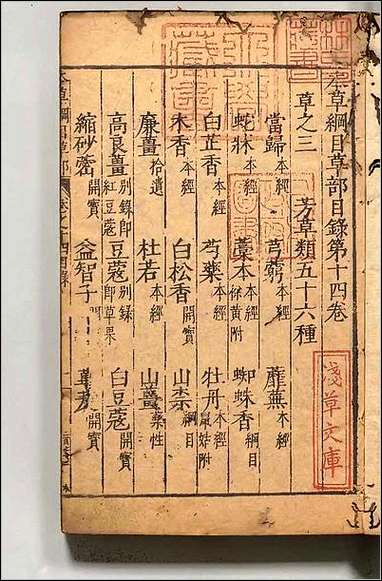 本草綱目草部目錄第十四卷
草之三　芳草類五十六種
當歸本經　芎藭本經　蘼蕪本經
蛇牀本經　藁本本經 徐黃附　蜘蛛香綱目
白芷本經　芍藥本經　牡丹本經 鼠姑附
木香本經　白松香開寶　山柰綱目
廉薑拾遺　杜若本經　山薑藥性
高良薑別錄即紅豆蔻　豆蔻別錄即草果　白豆蔻開寶
縮砂蔤開寶　益智子　開寶
淺草文庫